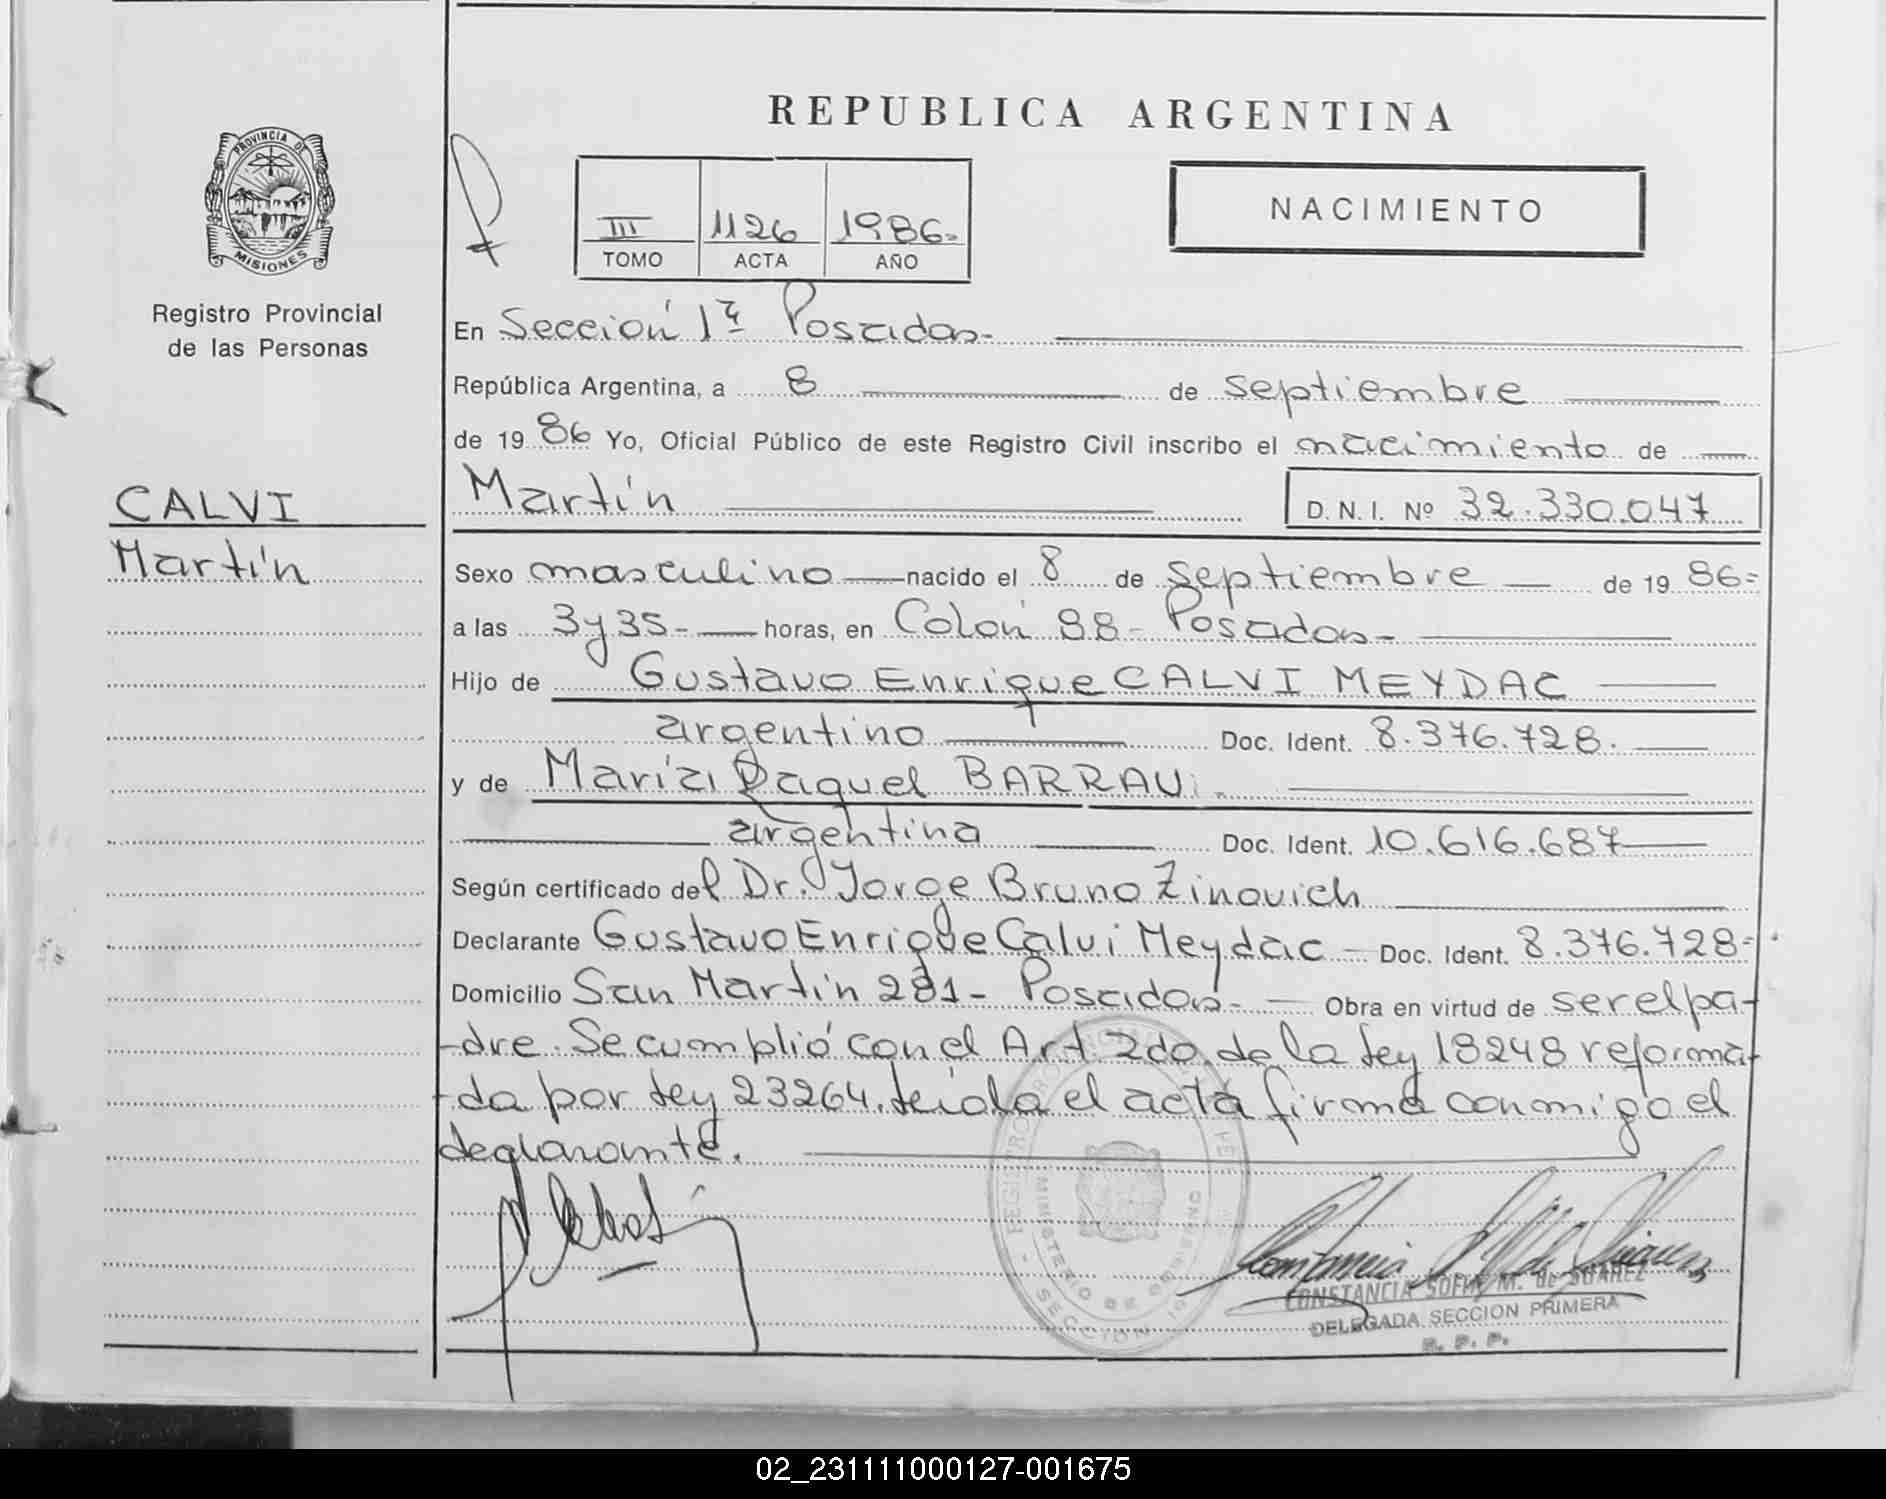 REPUBLICA ARGENTINA
PROVINCIA DE
MISIONES
Registro Provincial
de las Personas
III 1126 1986-
TOMO ACTA AÑO
NACIMIENTO
En Sección 1ª Posadas-
República Argentina, a 8 de septiembre
de 1986 Yo, Oficial Público de este Registro Civil inscribo el nacimiento de
CALVI
Martín
Martín D.N.I. Nº 32.330.047
Sexo masculino nacido el 8 de septiembre de 1986=
a las 3 y 35- horas, en Colón 98- Posadas-
Hijo de Gustavo Enrique CALVI MEYDAC
argentino Doc. Ident. 8.376.728.
y de María Raquel BARRAU
argentina Doc. Ident. 10.616.687
Según certificado del Dr. Jorge Bruno Zinovich
Declarante Gustavo Enrique Calvi Meydac - Doc. Ident. 8.376.728=
Domicilio San Martín 281- Posadas- Obra en virtud de ser el pa-
-dre. Se cumplió con el Art 2do. de la Ley 18248 reforma-
-da por Ley 23264. Leída el acta firma conmigo el
declarante.
MINISTERIO DE GOBIERNO
CONSTANCIA SOFIA M. de SUAREZ
DELEGADA SECCION PRIMERA
R. P. P.
02_231111000127-001675